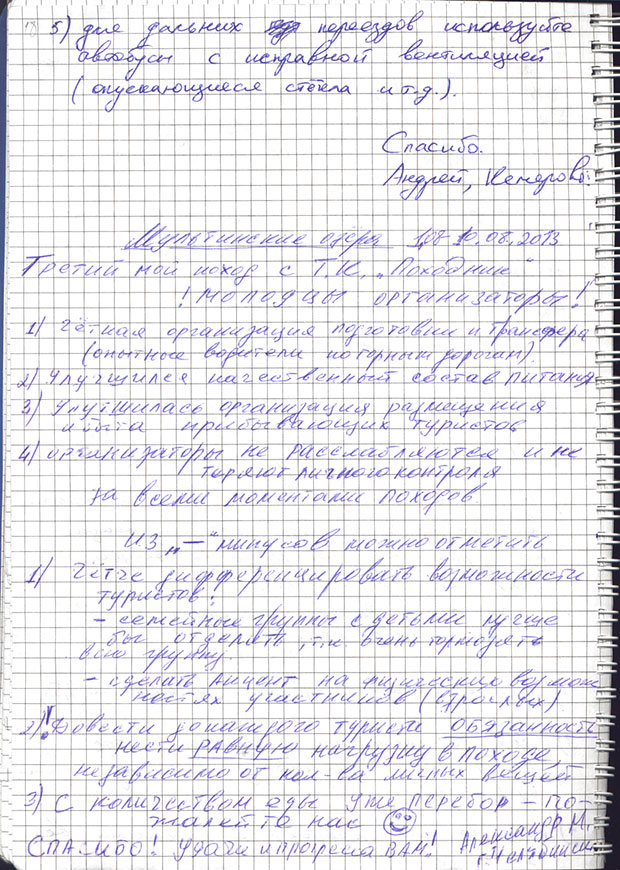 5) для дальних переездов используйте
автобусы с исправной вентиляцией
(опускающиеся стёкла и т.д.).
Спасибо.
Андрей, Кемерово.
Мультинские озера 1,08-10.08.2013
Третий мой поход с Т.К. „Походник“
! молодцы организаторы!
1) Чёткая организация подготовки и трансфера
(опытные водители по горным дорогам).
2) Улучшился качественный состав питания
3) Улутшилась организация размещения
и быта прибывающих туристов
4) организаторы не расслабляются и не
теряют личного контроля
за всеми моментами походов.
из „—“ минусов можно отметить
1) Чётче дифференцировать возможности
туристов:
- семейные группы с детьми лучше
бы отделять, т.к очень тормозят
всю группу.
- сделать акцент на физических возмож
ностях участников (взрослых)
2)! Довести до каждого туриста ОБЯЗАННОСТЬ
нести РАВНУЮ нагрузку в походе,
независимо от кол-ва личных вещей
3) С количеством еды уже перебор - по-
жалейте нас
СПА-ИБО! Удачи и прогресса ВАМ! Александр М.